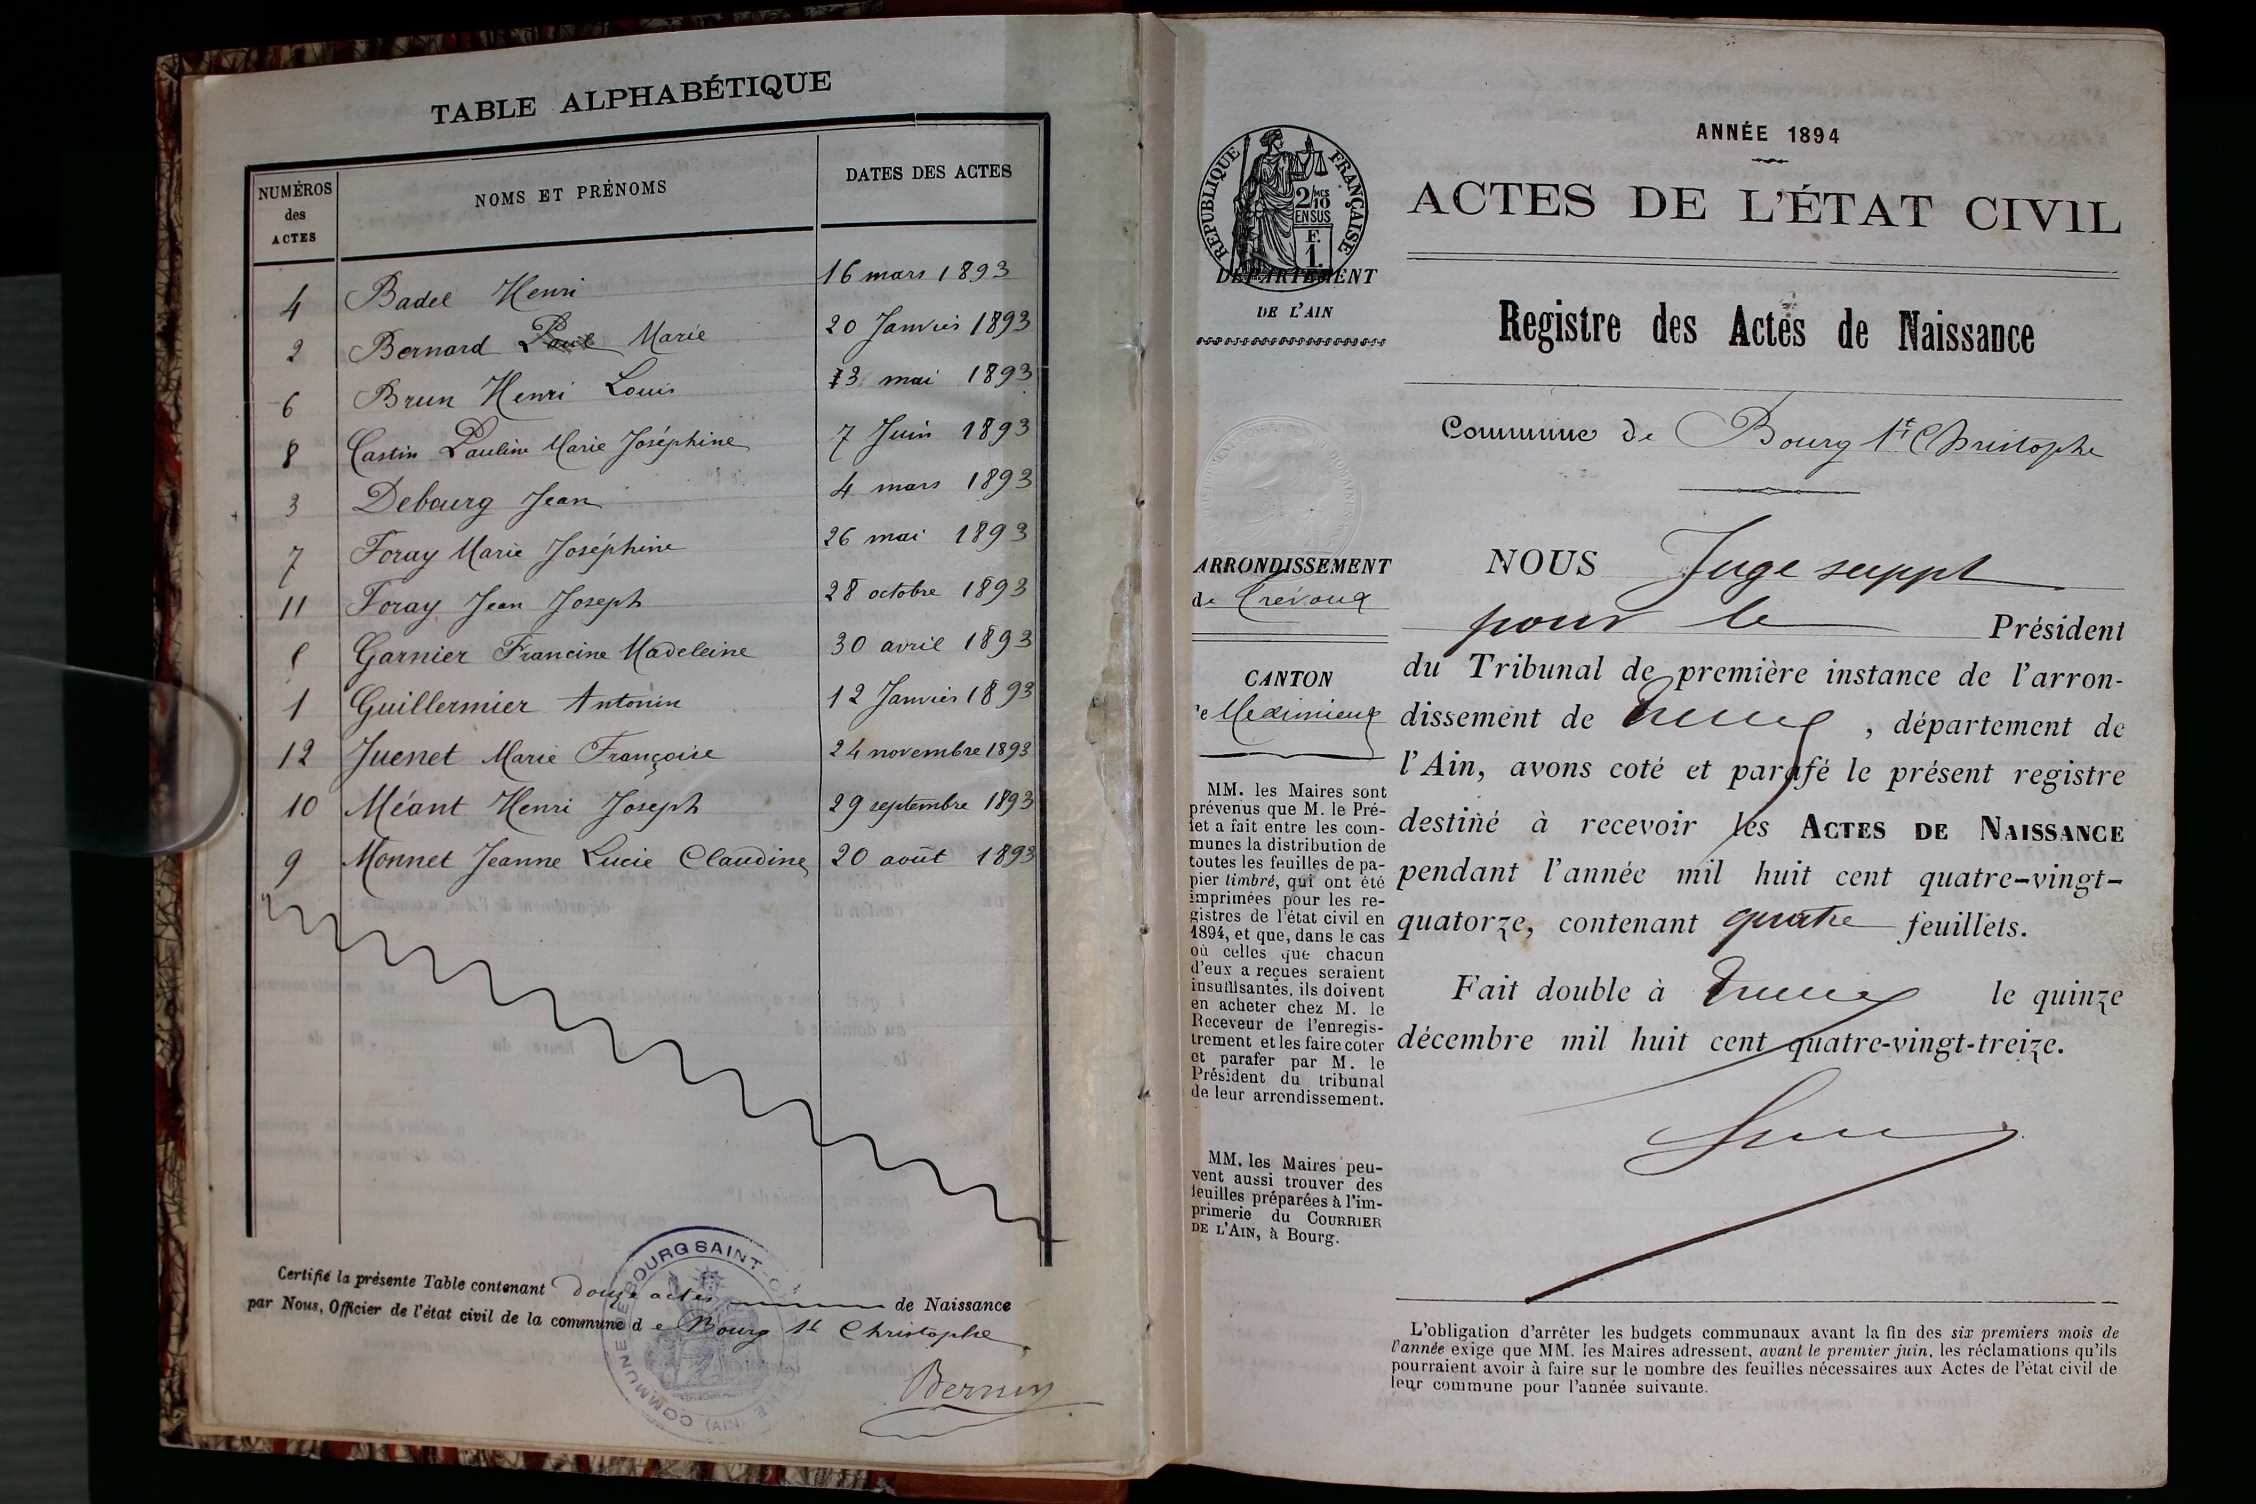 TABLE ALPHABÉTIQUE
NUMÉROS des ACTES
NOMS ET PRÉNOMS
DATES DES ACTES
4 Badel Henri 16 mars 1893
2 Bernard Paul Marie 20 Janvier 1893
6 Brun Henri Louis 13 mai 1893
8 Castin Pauline Marie Joséphine 7 Juin 1893
3 Debourg Jean 4 mars 1893
7 Foray Marie Joséphine 26 mai 1893
11 Foray Jean Joseph 28 octobre 1893
Garnier Francine Madeleine 30 avril 1893
1 Guillermier Antonin 12 Janvier 1893
12 Juenet Marie Françoise 24 novembre 1893
10 Méant Henri Joseph 29 septembre 1893
9 Monnet Jeanne Lucie Claudine 20 août 1893
Certifié la présente Table contenant Douze actes de Naissance
par Nous, Officier de l'état civil de la commune de Bourg St Christophe
COMMUNE DE BOURG SAINT-C HE (AIN)
ANNÉE 1894
ACTES DE L'ÉTAT CIVIL
Registre des Actes de Naissance
Commune de Bourg St Christophe
RÉPUBLIQUE FRANÇAISE
2/10 MES
EN SUS
F.
1.
DÉPARTEMENT
DE L'AIN
ARRONDISSEMENT
de Trévoux
CANTON
de Meximieux
MM. les Maires sont
prévenus que M. le Pré-
fet a fait entre les com-
munes la distribution de
toutes les feuilles de pa-
pier timbré, qui ont été
imprimées pour les re-
gistres de l'état civil en
1894, et que, dans le cas
où celles que chacun
d'eux a reçues seraient
insuffisantes, ils doivent
en acheter chez M. le
Receveur de l'enregis-
trement et les faire coter
et parafer par M. le
Président du tribunal
de leur arrondissement.
MM. les Maires peu-
vent aussi trouver des
feuilles préparées à l'im-
primerie du COURRIER
DE L'AIN, à Bourg.
NOUS Juge suppt
pour le Président
du Tribunal de première instance de l'arron-
dissement de Trévoux, département de
l'Ain, avons coté et parafé le présent registre
destiné à recevoir les ACTES DE NAISSANCE
pendant l'année mil huit cent quatre-vingt-
quatorze, contenant quatre feuillets.
Fait double à Trévoux le quinze
décembre mil huit cent quatre-vingt-treize.
L'obligation d'arrêter les budgets communaux avant la fin des six premiers mois de
l'année exige que MM. les Maires adressent, avant le premier juin, les réclamations qu'ils
pourraient avoir à faire sur le nombre des feuilles nécessaires aux Actes de l'état civil de
leur commune pour l'année suivante.